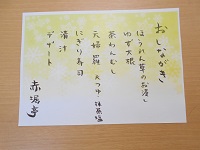 おしながき
ほうれん草のお浸し
ゆず大根
茶わんむし
天婦羅 天つゆ 抹茶塩
にぎり寿司
清汁
デザート
赤坂亭